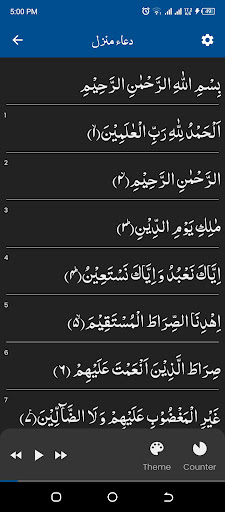 5:00 PM
دعاء منزل
بِسْمِ اللهِ الرَّحْمٰنِ الرَّحِيْمِ
1
اَلْحَمْدُ لِلّٰهِ رَبِّ الْعٰلَمِيْنَ﴿۱﴾
2
الرَّحْمٰنِ الرَّحِيْمِ﴿۲﴾
3
مٰلِكِ يَوْمِ الدِّيْنِ﴿۳﴾
4
اِيَّاكَ نَعْبُدُ وَاِيَّاكَ نَسْتَعِيْنُ﴿۴﴾
5
اِهْدِنَا الصِّرَاطَ الْمُسْتَقِيْمَ﴿۵﴾
6
صِرَاطَ الَّذِيْنَ اَنْعَمْتَ عَلَيْهِمْ﴿۶﴾
7
غَيْرِ الْمَغْضُوْبِ عَلَيْهِمْ وَلَا الضَّآلِّيْنَ﴿۷﴾
Theme Counter